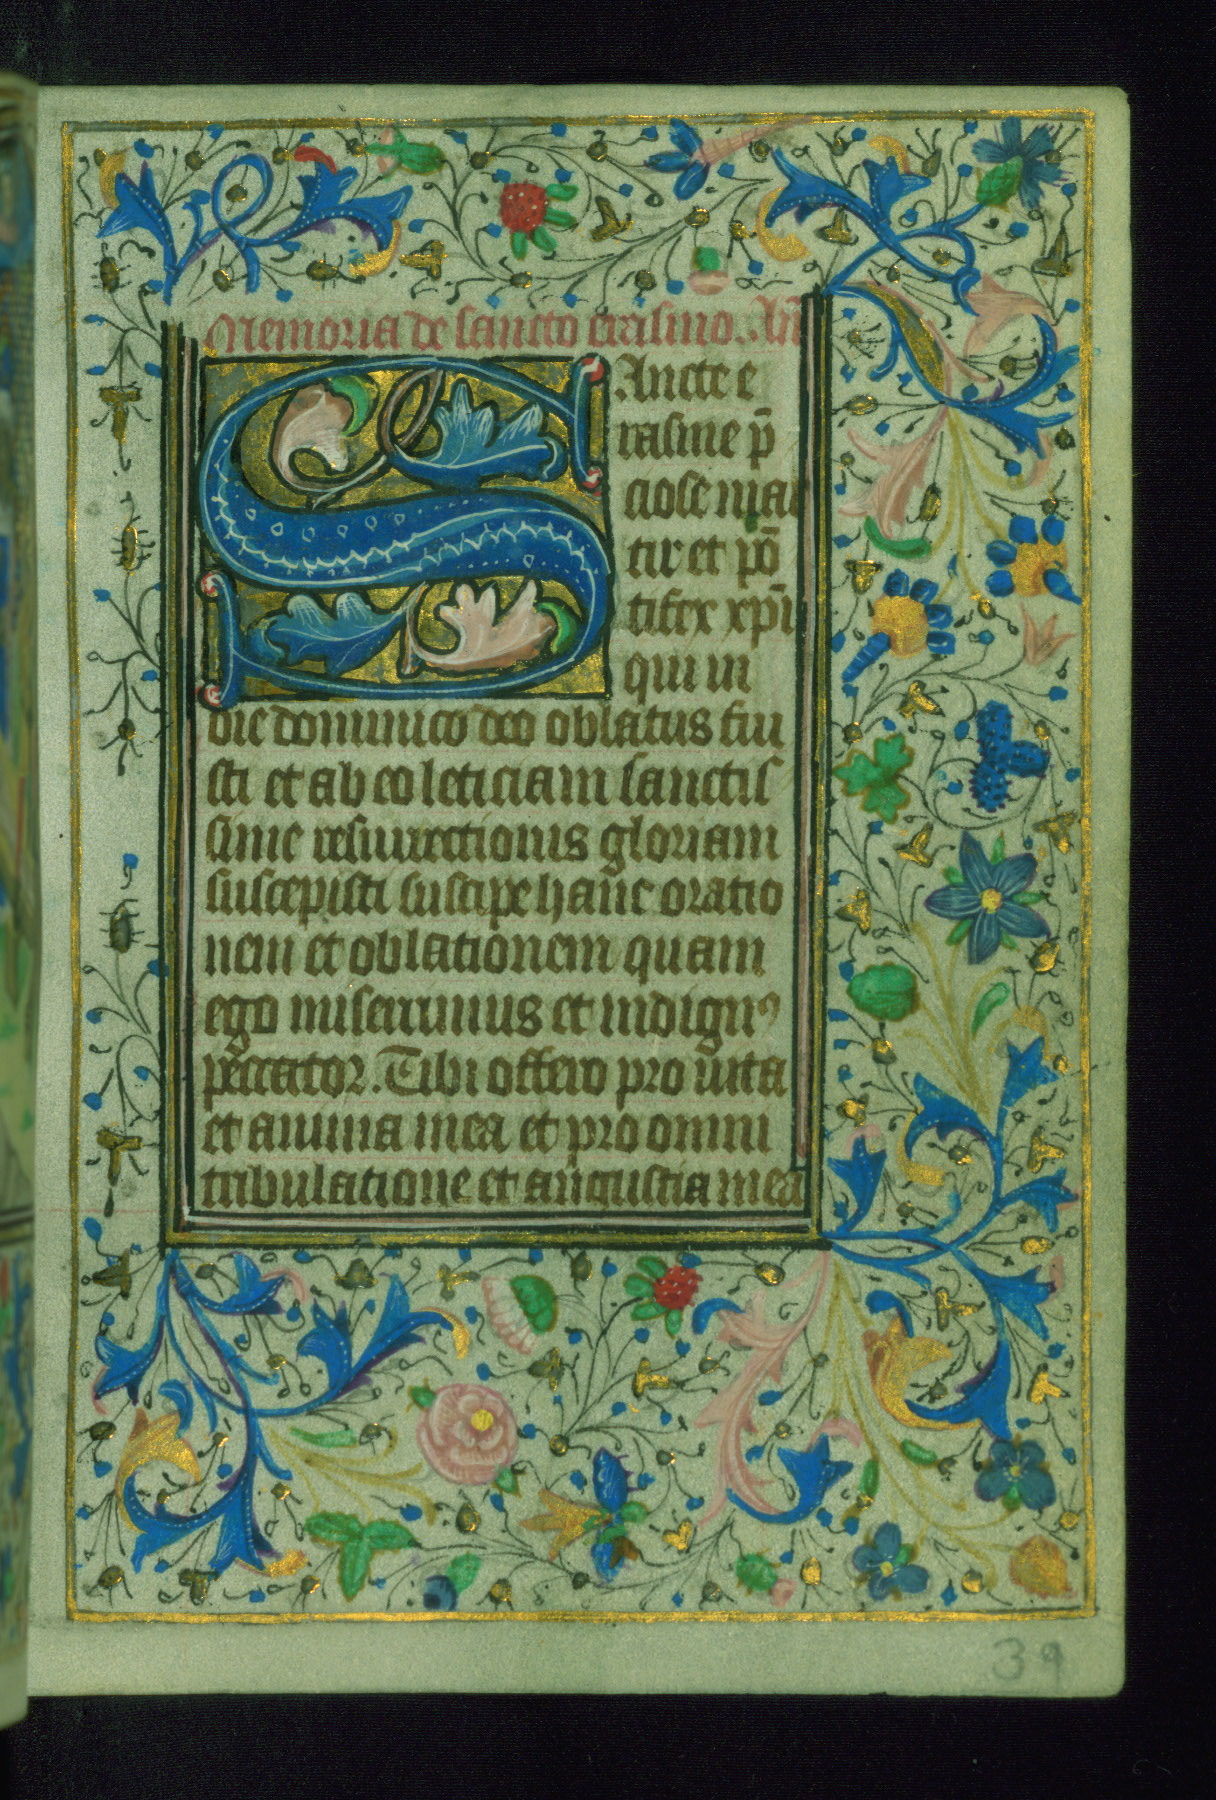 Memoria de sancto erasmo. An̄
SAncte e
rasme p̄
ciose mar
tir et pō
tifex xp̄i
qui in
die dominico deo oblatus fui
sti et ab eo leticiam sanctis
sime resurrectionis gloriam
suscepisti suscipe hanc oratio
nem et oblationem quam
ego miserrimus et indignꝰ
peccator. Tibi offero pro vita
et anima mea et pro omni
tribulatione et angustia mea
39